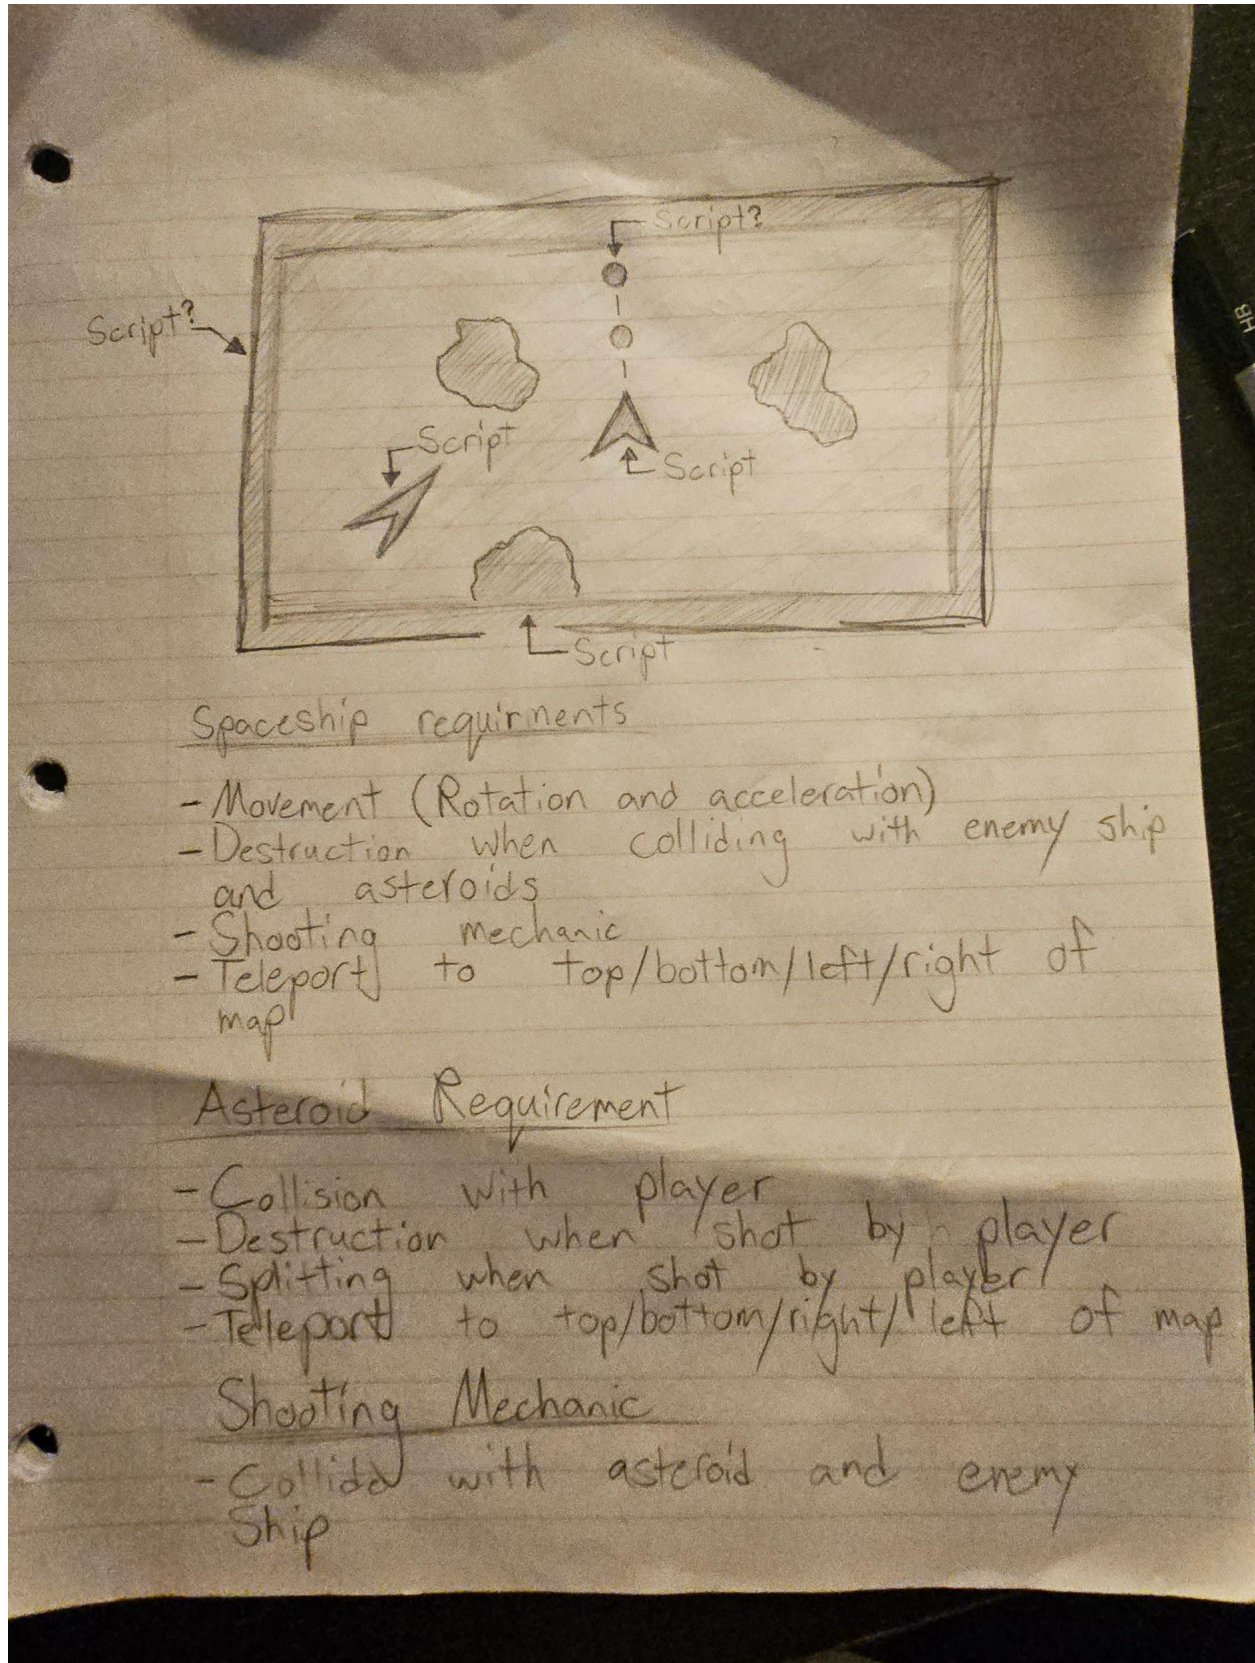 Script?
Script?
Script
Script
Script
Spaceship requirments
- Movement (Rotation and acceleration)
- Destruction when colliding with enemy ship
and asteroids
- Shooting mechanic
- Teleport to top/bottom/left/right of
map
Asteroid Requirement
- Collision with player
- Destruction when shot by player
- Splitting when shot by player
- Teleport to top/bottom/right/left of map
Shooting Mechanic
- Collide with asteroid and enemy
Ship
HB